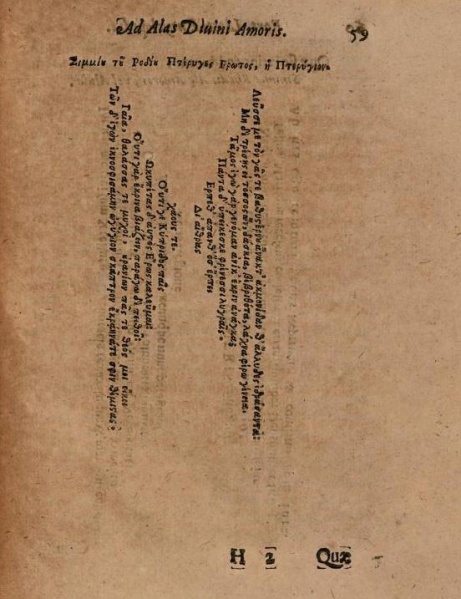 Ad Alas Diuini Amoris. 59
Σιμμίου τοῦ Ροδίου Πτέρυγες Ερωτος, ἢ Πτερύγιον.
Λεῦσσέ με τὸν γᾶς τε βαθυστέρνου ἄνακτ' ἀκμονίδαν θ' ἄλλυδις ἑδράσαντα·
Μὴ δὲ τρέσης εἰ τόσσος ὢν, δάσκια, βεβριθότα, λάχνα φέρω γένεια.
Τᾶμος ἐγὼ γὰρ γενόμαν ἁνίκ' ἔκριν' ἀνάγκα·
Πάντα δ' ὑπείκεσκε φρένεσσι λυγραῖς·
Ερπεθ' ἅπανθ' ὅσ' ἕρπει
Δι' αἴθρας
χάους τε.
Οὔτι γε Κύπριδος παῖς
Ωκυπέτας δ' αὐτὸς Ερως καλεῦμαι·
Οὔτι γὰρ ἔκρινα βιάζειν, παράγω δὲ πειθοῖ·
Γαῖα, θαλάσσας τε μυχοὶ, οὐρανίων πᾶς τε θεός μοι εἴκει
Τῶν δ' ἐγὼν ἐκνοσφισάμαν ὠγύγιον σκᾶπτρον ἔκρινον τε σφιν θέμιστας·
H 2 Quæ